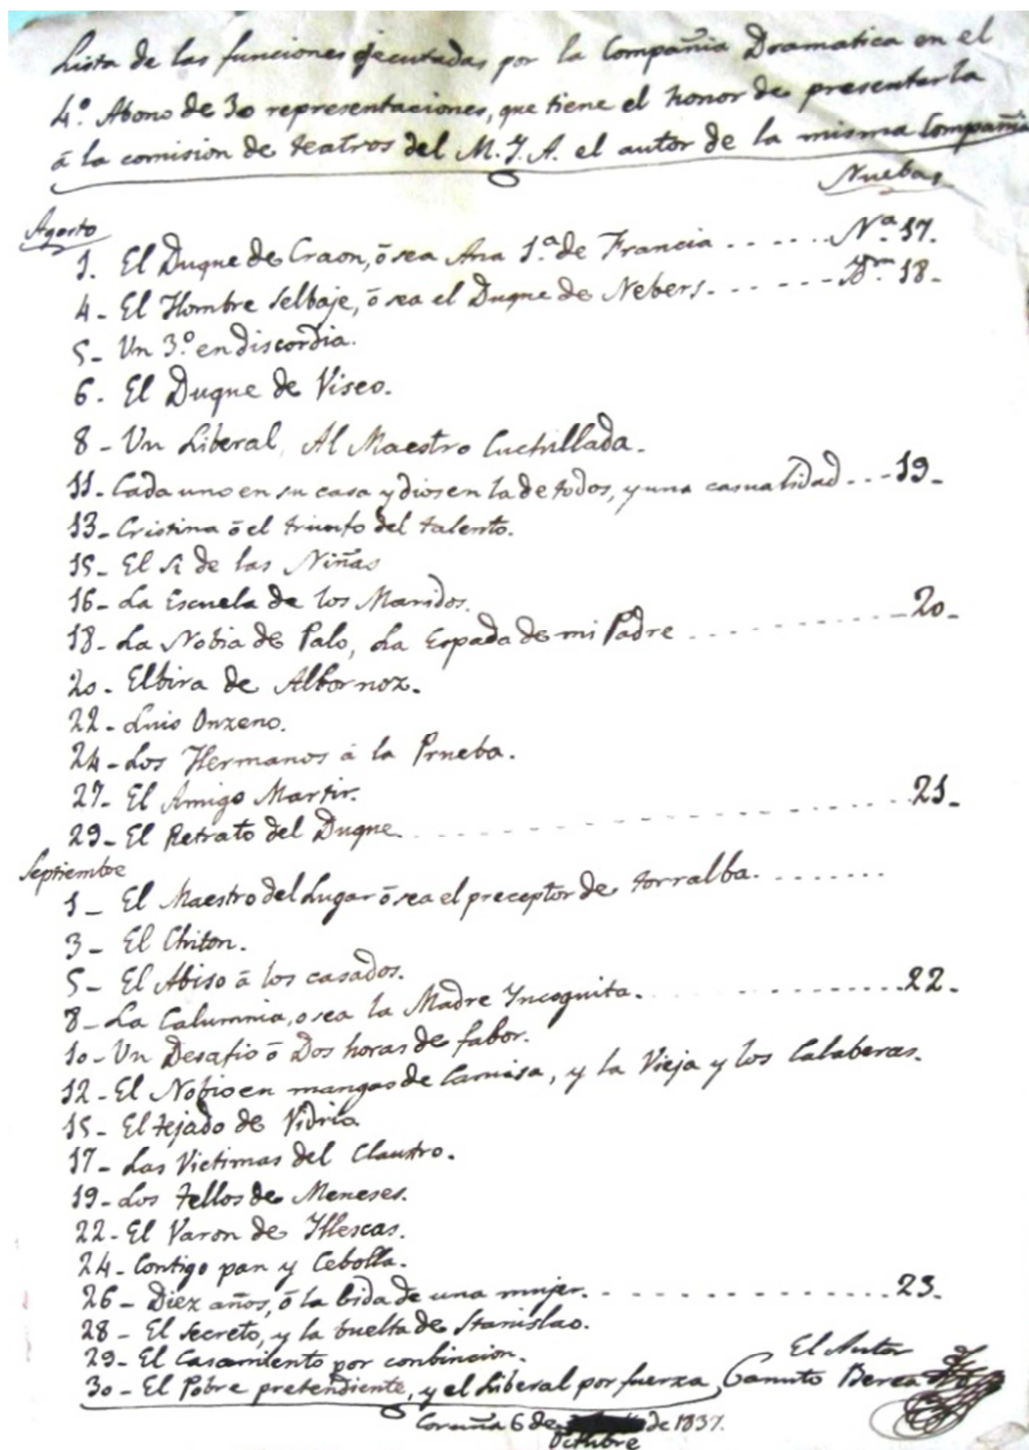 Lista de las funciones ejecutadas por la Compañia Dramatica en el
4.º Abono de 30 representaciones, que tiene el honor de presentar la
á la comision de teatros del M. Y. A. el autor de la misma Compañia
Nuebas
Agosto
1. El Duque de Craon, ó sea Ana 1.ª de Francia ...... N.ª 17.
4 - El Hombre Selbaje, ó sea el Duque de Nebers. ------ Ydm. 18-
5 - Un 3.º en discordia.
6. El Duque de Viseo.
8 - Un Liberal, Al Maestro Cuchillada.
11 - Cada uno en su casa y dios en la de todos, y una casualidad ... 19-
13 - Cristina ó el triunfo del talento.
15 - El si de las Niñas
16 - La Escuela de los Maridos.
18 - La Nobia de Palo, La Espada de mi Padre .......... 20-
20 - Elbira de Albornoz.
22 - Luis Onzeno.
24 - Los Hermanos á la Prueba.
27 - El Amigo Martir.
29 - El Retrato del Duque. .......... 21-
Septiembre
1 - El Maestro del Lugar ó sea el preceptor de torralba. ........
3 - El Chiton.
5 - El Abiso á los casados.
8 - La Calumnia, o sea la Madre Yncognita. .......... 22-
10 - Un Desafio ó Dos horas de fabor.
12 - El Nobio en mangas de Camisa, y la Vieja y los Calaberas.
15 - El tejado de Vidrio
17 - Las Victimas del Claustro.
19 - Los Tellos de Meneses.
22 - El Varon de Yllescas.
24 - Contigo pan y Cebolla.
26 - Diez años, ó la bida de una mujer. .......... 23-
28 - El Secreto, y la buelta de Stanislao.
29 - El Casamiento por conbincion.
30 - El Pobre pretendiente, y el Liberal por fuerza
El Autor
Canuto Berea
Coruña 6 de Octubre de 1837.